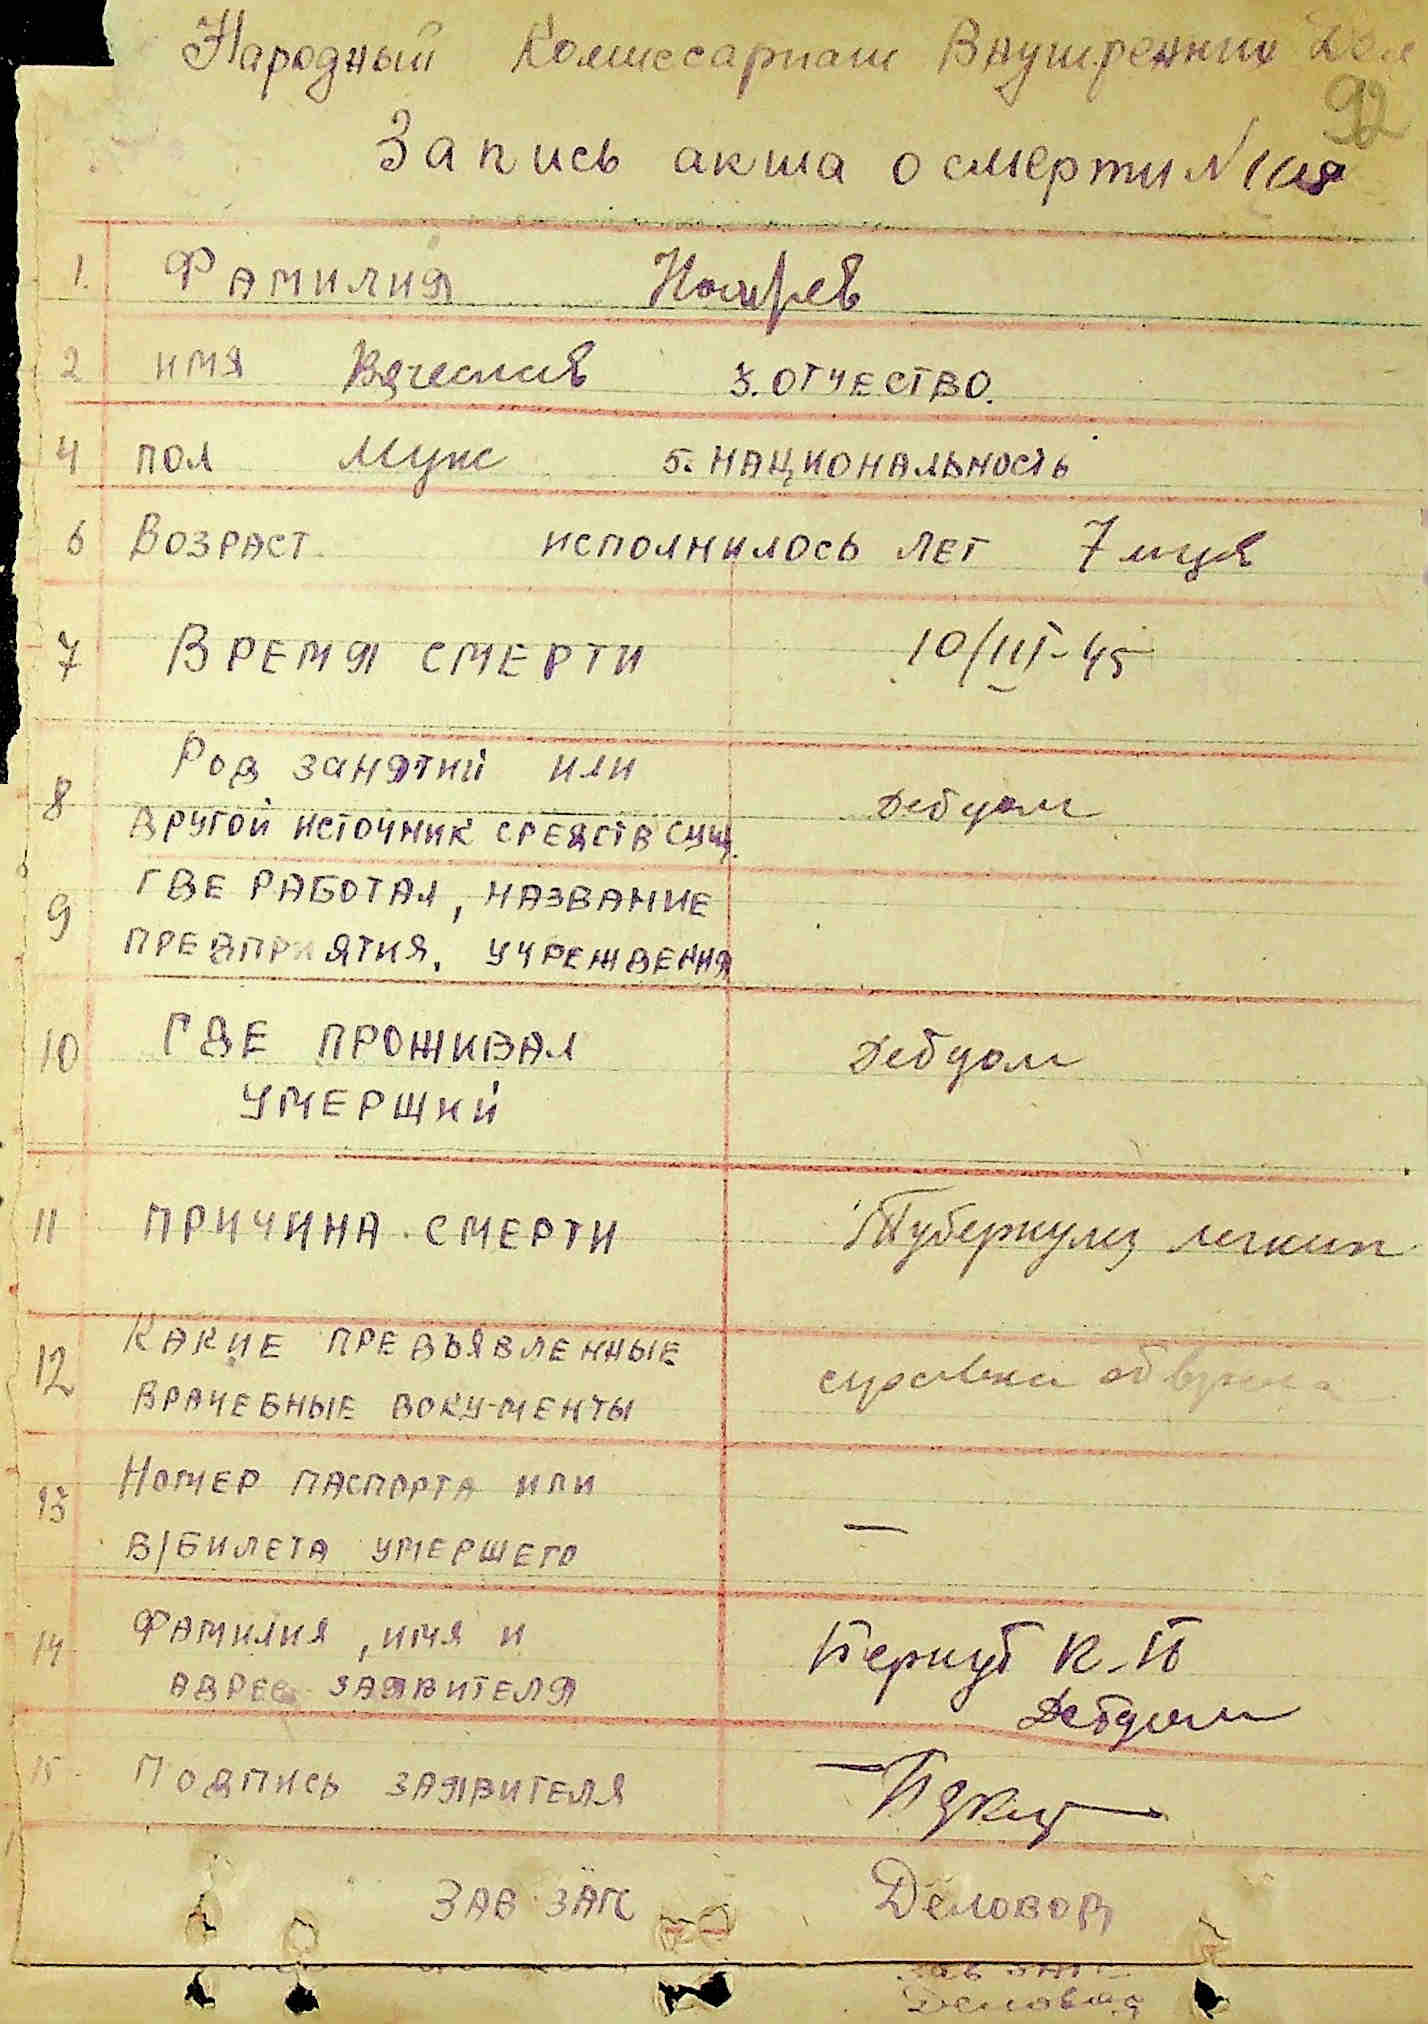 Народный Комиссариат Внутренних Дел
92
Запись акта о смерти N
1. Фамилия
2 имя Вячеслав 3. отчество.
4 пол Муж 5. национальность
6 Возраст исполнилось лет 7 мцев
7 Время смерти 10/III-45
8 Род занятий или
другой источник средств сущ. Дебдом
9 где работал, название
предприятия, учреждения
10 Где проживал Дебдом
умерший
11 Причина смерти Туберкулез легких
12 Какие предъявленные
врачебные документы справка
13 Номер паспорта или
в/билета умершего —
14 Фамилия, имя и
адрес заявителя К. П
Дебдом
15 Подпись заявителя
Зав. ЗАГС Деловов
Зав ЗАГС